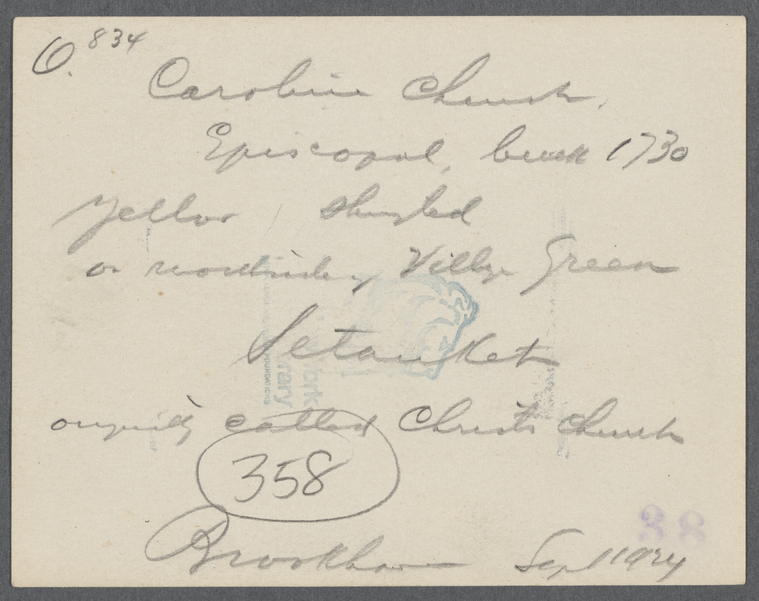 O. 834
Caroline Church,
Episcopal, built 1730
Yellow shingled
on northside of Village Green
Setauket
originally called Christ's Church
358
38
Brookhaven Sept 1924